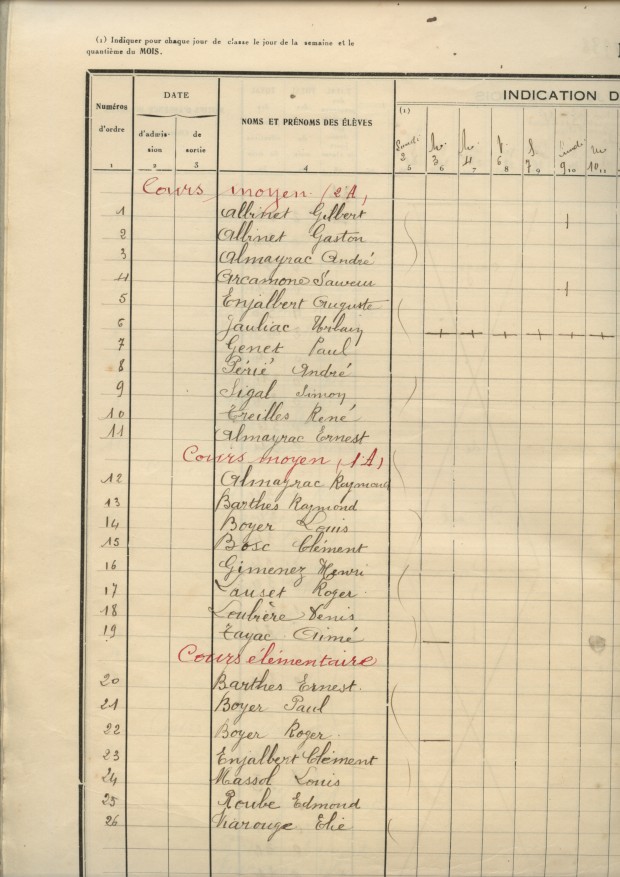 (1) Indiquer pour chaque jour de classe le jour de la semaine et le
quantième du MOIS.
Numéros d'ordre
DATE
d'admission
de sortie
NOMS ET PRÉNOMS DES ÉLÈVES
INDICATION D
(1)
Lundi 2
Ma. 3
Me. 4
V. 6
S. 7
Lundi 9
M 10
1 2 3 4 5 6 7 8 9 10 11
Cours moyen (2e A)
1 Albinet Gilbert
2 Albinet Gaston
3 Almayrac André
4 Arcamone Sauveur
5 Enjalbert Auguste
6 Jauliac Urbain
7 Genet Paul
8 Périé André
9 Sigal Simon
10 Treilles René
11 Almayrac Ernest
Cours moyen (1e A)
12 Almayrac Raymond
13 Barthes Raymond
14 Boyer Louis
15 Bosc Clément
16 Gimenez Henri
17 Lauset Roger
18 Loubière Denis
19 Tayac Aimé
Cours élémentaire
20 Barthes Ernest.
21 Boyer Paul
22 Boyer Roger
23 Enjalbert Clément
24 Massol Louis
25 Roube Edmond
26 Marouge Elie